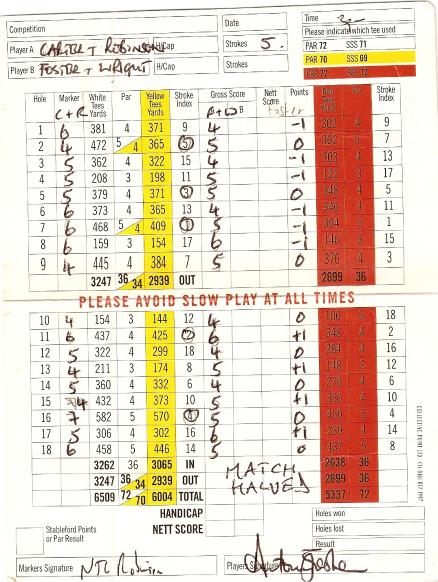 Competition
Date
Time
Please indicate which tee used
Player A CARTER + ROBINSON H/Cap
Strokes 5.
PAR 72 SSS 71
PAR 70 SSS 69
Player B FOSTER + WRIGHT H/Cap
Strokes
PAR 72 SSS 72
Hole Marker White Tees Yards Par Yellow Tees Yards Stroke Index Gross Score Nett Score Points Red Tees Yards Par Stroke Index
C+R B
1 6 381 4 371 9 4 -1 362 4 9
2 4 472 5 4 365 5 5 0 7
3 5 362 4 322 15 4 -1 303 4 13
4 5 208 3 198 11 5 -1 3 17
5 5 379 4 371 3 5 0 348 4 5
6 6 373 4 365 13 4 -1 346 4 11
7 6 468 5 4 409 1 5 -1 394 5 1
8 6 159 3 154 17 6 -1 146 3 15
9 4 445 4 384 7 5 0 376 4 3
3247 36 34 2939 OUT 2699 36
PLEASE AVOID SLOW PLAY AT ALL TIMES
10 4 154 3 144 12 4 0 106 3 18
11 6 437 4 425 2 6 +1 348 4 2
12 5 322 4 299 18 4 0 284 4 16
13 4 211 3 174 8 5 +1 148 3 12
14 5 360 4 332 6 4 0 270 4 6
15 4 432 4 373 10 5 +1 350 4 10
16 7 582 5 570 4 6 0 450 5 4
17 5 306 4 302 16 6 +1 239 4 14
18 6 458 5 446 14 5 0 437 5 8
3262 36 3065 IN 2638 36
3247 36 34 2939 OUT 2699 36
6509 72 70 6004 TOTAL 5337 72
MATCH
HALVED
HANDICAP
NETT SCORE
Holes won
Holes lost
Result
Stableford Points
or Par Result
Markers Signature
Players Signature